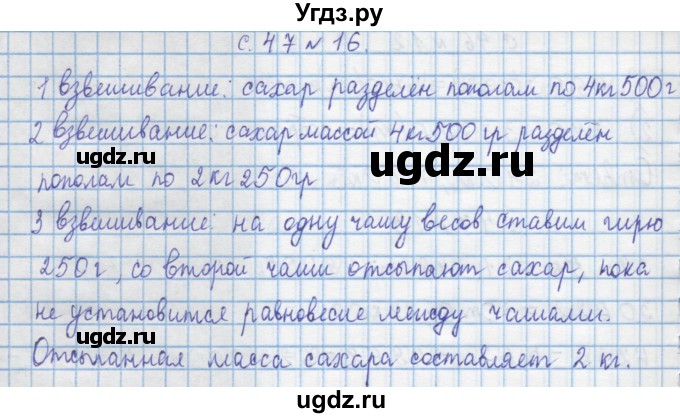 Угдз.ру
с. 47 № 16.
1 взвешивание: сахар разделён пополам по 4кг 500г
2 взвешивание: сахар массой 4кг 500 гр разделён
пополам по 2 кг 250гр
3 взвешивание: на одну чашу весов ставим гирю
250 г, со второй чаши отсыпают сахар, пока
не установится равновесие между чашами.
Отсыпанная масса сахара составляет 2 кг.
ugdz.ru ugdz.ru
ugdz.ru
ugdz.ru ugdz.ru
ugdz.ru
ugdz.ru